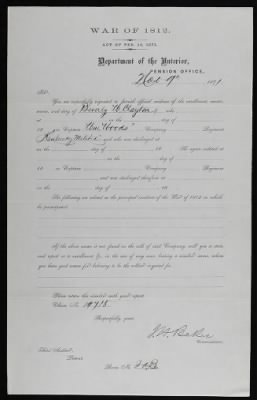 WAR OF 1812.
ACT OF FEB. 14, 1871.
Department of the Interior,
PENSION OFFICE,
187
SIR:
You are respectfully requested to furnish official evidence of the enrollment, muster,
service, and discharge of Beverly H. Clayton who
on the day of
18 in Captain Wm Woods' Company Regiment
Kentucky Militia and was discharged at
on the day of 18 He again enlisted at
on the day of
18 in Captain Company Regiment
and was discharged therefrom at
on the day of 18
The following are stated as the principal incidents of the War of 1812 in which
he participated:
If the above name is not found on the rolls of said Company, will you
and report as to enrollment &c., in the case of any man, bearing a similar name, whom
you have good reason for believing to be the soldier inquired for.
Please return this circular with your report.
Claim No. 10,718
Respectfully, yours,
J. H. Baker
Commissioner.
Third Auditor,
Present.